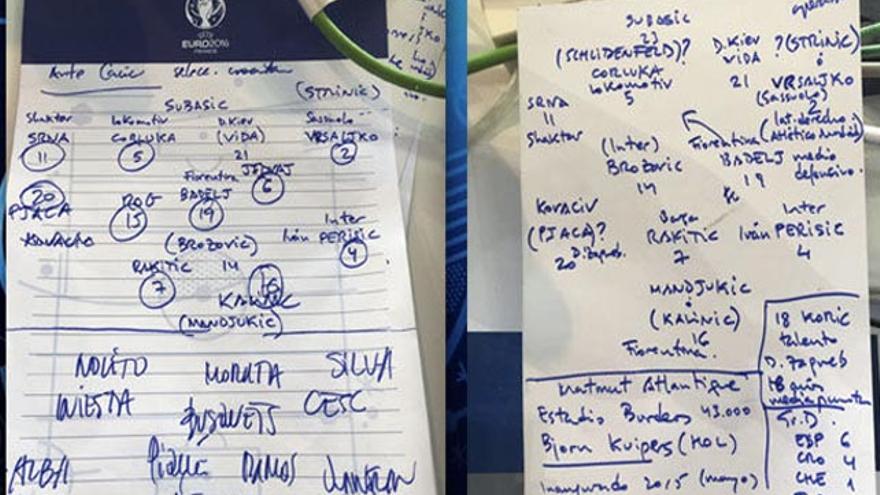 UEFA
EURO2016
FRANCE
Ante Cacic selecc. croata
(STRINIC)
SUBASIC
Shaktar Lokomotiv D.Kiev Sassuolo
SRNA CORLUKA (VIDA) VRSALJKO
11 5 21 2
Fiorentina JEDVAJ
20 ROG BADELJ 6
PJACA 15 19
KOVACIC (BROZOVIC) Inter
Iván PERISIC
RAKITIC 14 4
7 16
KALINIC
(MANDJUKIC)
NOLITO MORATA SILVA
INIESTA BUSQUETS CESC
ALBA Piqué RAMOS JUANFRAN
SUBASIC
23
(SCHLIDENFELD)? D.Kiev ?(STRINIC)
CORLUKA VIDA ó
LOKOMOTIV 21 VRSALJKO
SRNA 5 (Sassuolo)
11 2
Shaktar Lat. derecho
(Inter) Fiorentina (Atlético Madrid)
BROZOVIC BADELJ medio
14 19 defensivo.
KOVACIV Barça Inter
(PJACA)? RAKITIC Iván PERISIC
20 D. Zagreb 7 4
MANDJUKIC
ó
(KALINIC)
16
Fiorentina
18 KORIC
talento
D. Zagreb
18 años
media punta
Gr. D.
ESP 6
CRO 4
CHE 1
Matmut Atlantique
Estadio Burdeos 43.000
Bjorn Kuipers (HOL)
Inaugurado 2015 (mayo)